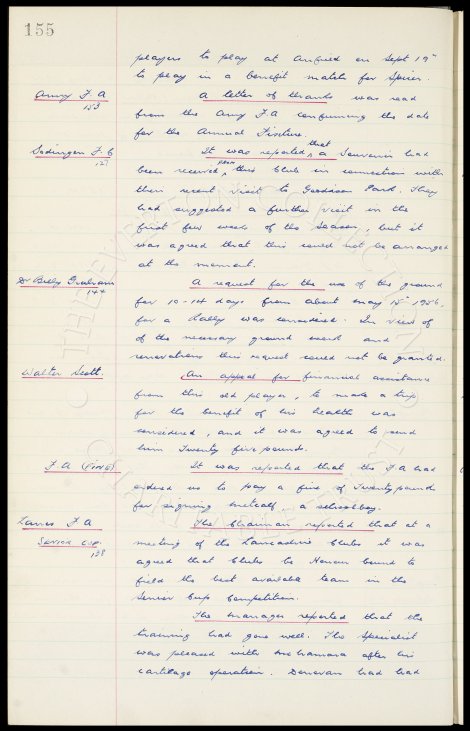 155
players to play at Anfield on Sept 19th
to play in a benefit match for Spicer.
Army F.A
153
A letter of thanks was read
from the Army F.A confirming the date
for the Annual Fixture.
Sodingen F.C
127
It was reported that a Souvenir had
been received from this Club in connection with
their recent visit to Goodison Park. They
had suggested a further visit in the
first few weeks of the Season, but it
was agreed that this could not be arranged
at the moment.
Dr Billy Graham
144
A request for the use of the ground
for 10-14 days from about May 15th 1956,
for a Rally was considered. In view of
of the necessary ground work and
renovations this request could not be granted.
Walter Scott.
An appeal for financial assistance
from this old player, to make a trip
for the benefit of his health was
considered, and it was agreed to send
him Twenty five pounds.
F.A (FINE)
It was reported that the F.A had
ordered us to pay a fine of Twenty pounds
for signing Metcalf, a schoolboy.
Lancs F.A
SENIOR CUP.
138
The Chairman reported that at a
meeting of the Lancashire Clubs it was
agreed that Clubs be Honour bound to
field the best available team in the
Senior Cup Competition.
The Manager reported that the
training had gone well. The Specialist
was pleased with McNamara after his
cartilage operation. Donovan had had
THE EVERTON COLLECTION
CHARITABLE TRUST